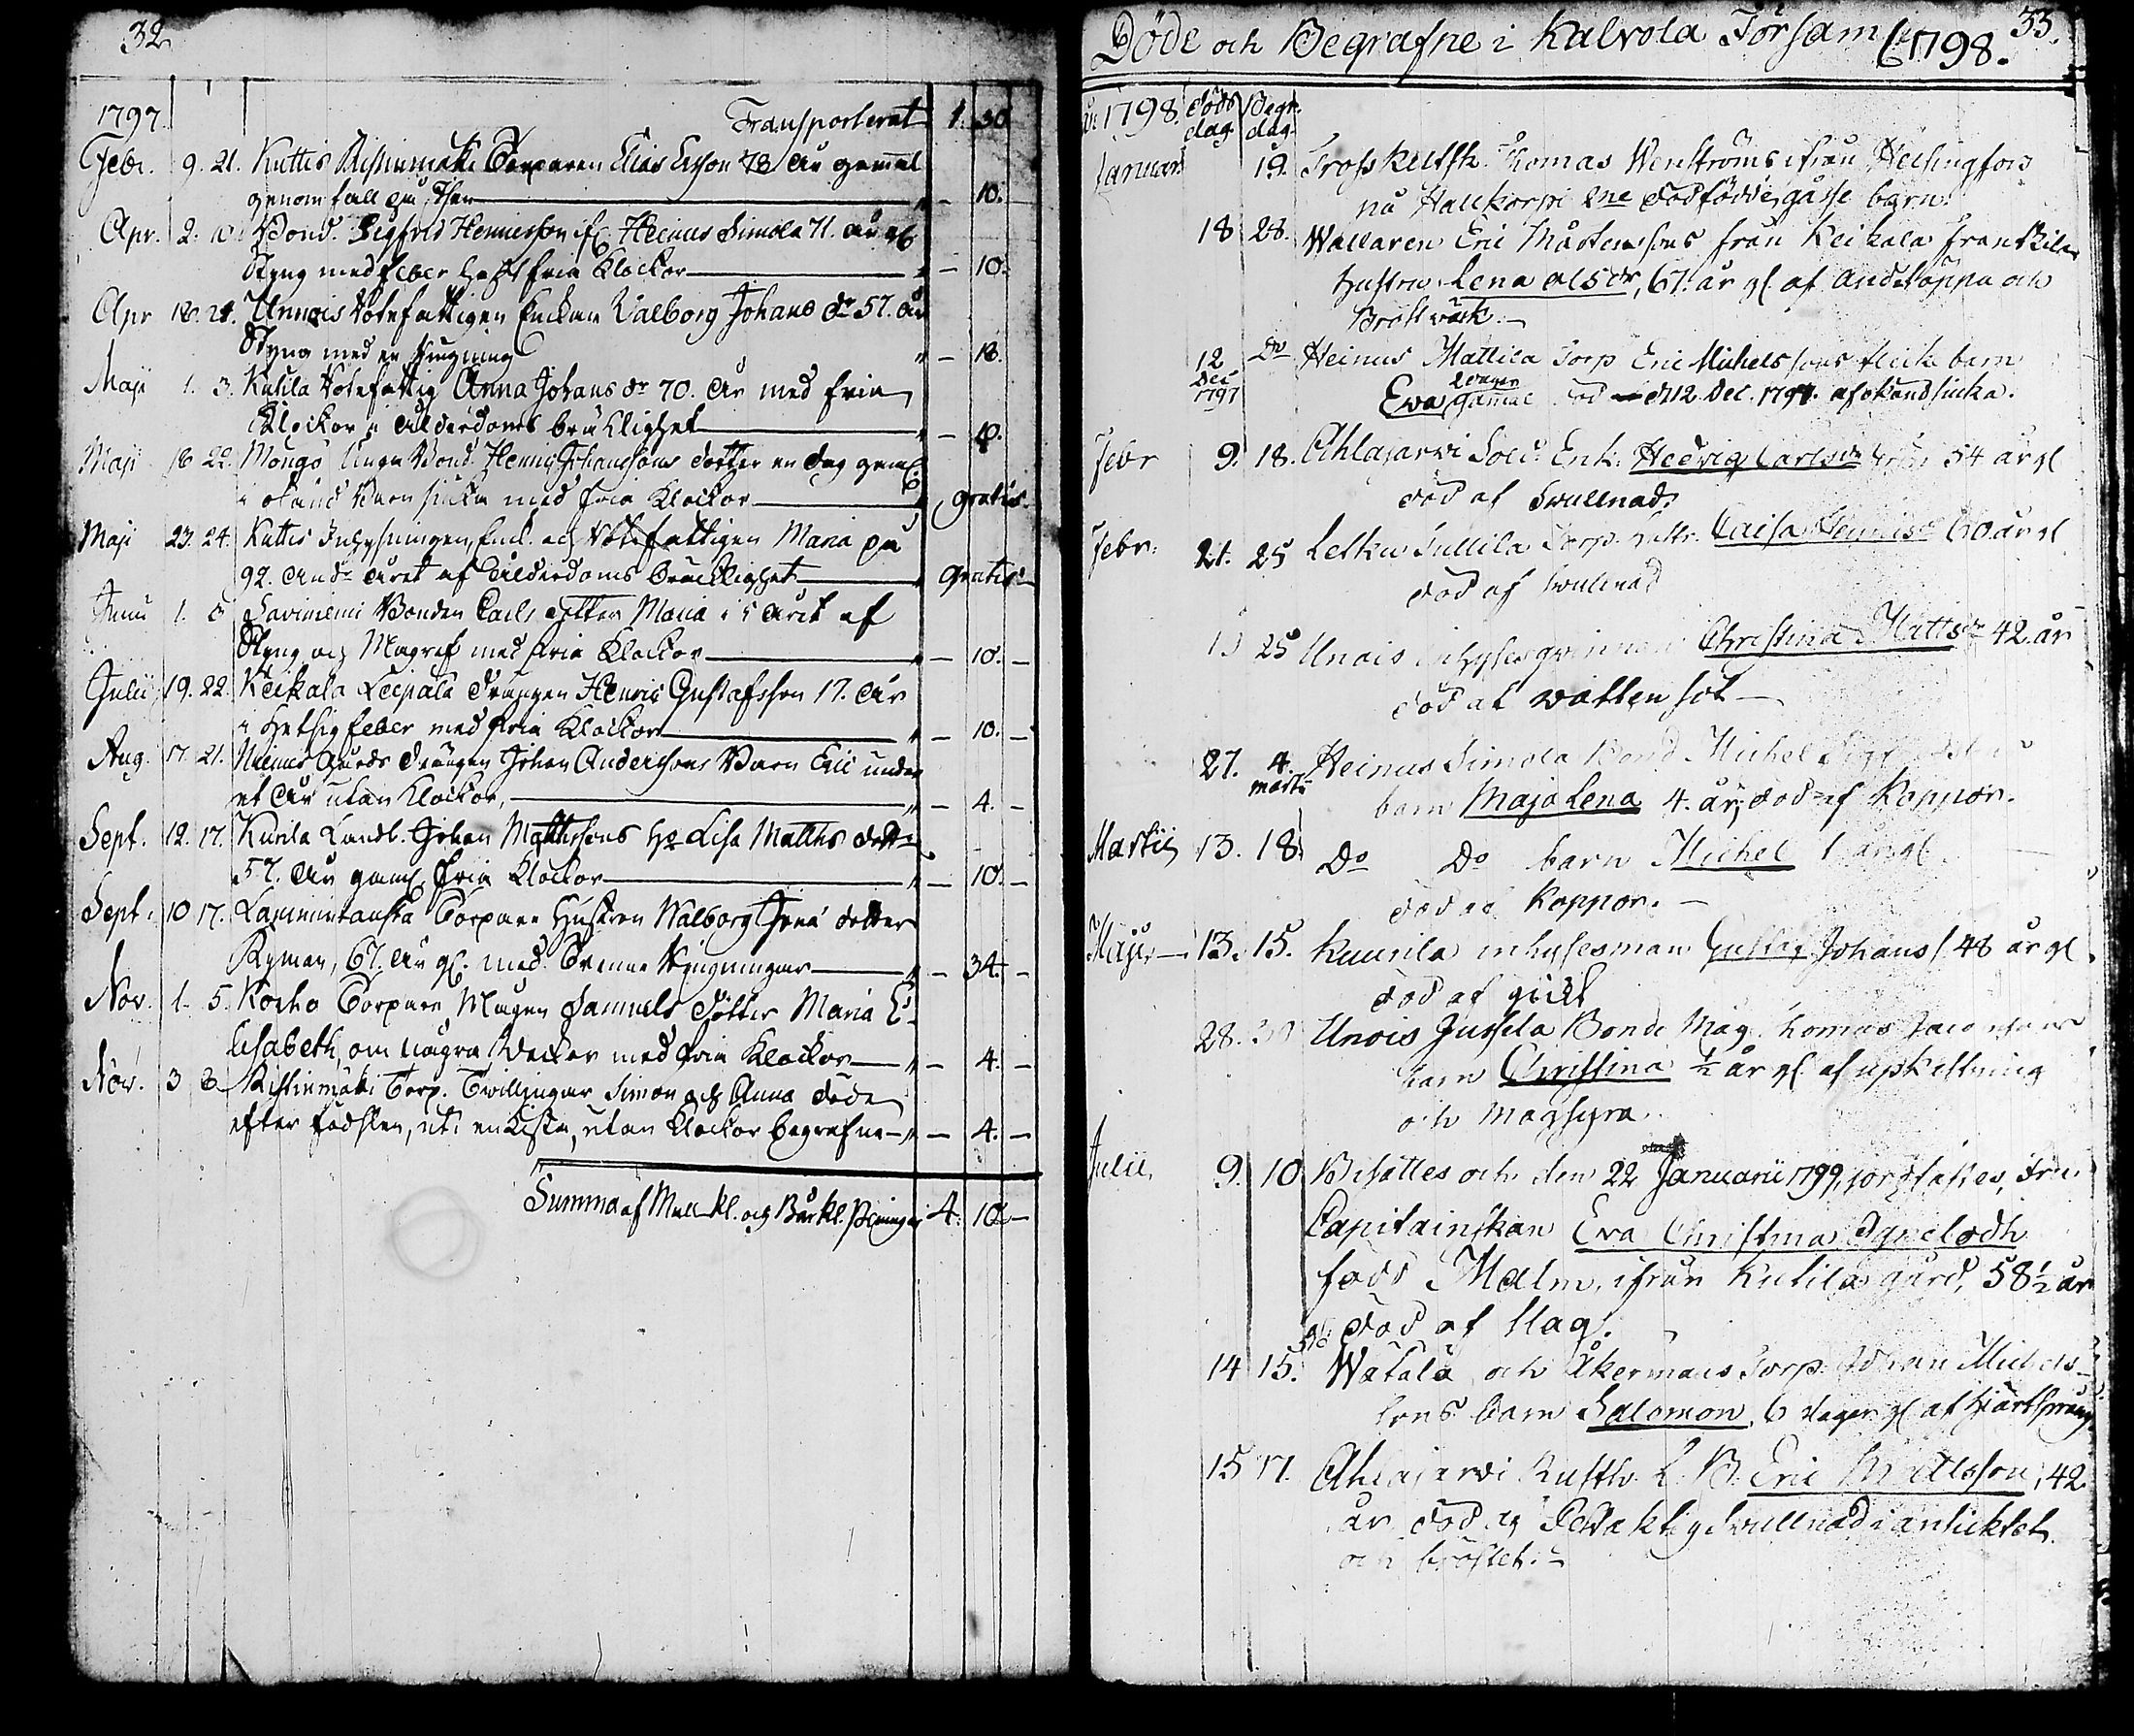 32
1797. Transporterat 1. 30
Febr. 9. 21. Kuttis Ristinmäki Torparen Elias Ersson 78 år gammal
genom fall på Isen — 10.
Apr. 2. 10. Bond. Sigfrid Hennersson if. Heinus Simola 71. år gl
Styng med feber haft fria Klockor — 10.
Apr 18. 21. Unnois Rotefattigen Enckan Valborg Johans dr 57. år
Styng med en Ringning — 18.
Maji 1. 3. Kutila Rotefattig Anna Johans dr 70. år med fria
Klockor i ålderdoms bräcklighet — 10.
Maji 18 22. Mongo Unga Bond. Henric Johanssons dotter en dag gaml
i okänd Barn siuka med fria Klockor — gratis.
Maji 23. 24. Kuttis Inhysningen, Enck. och Rotefattigen Maria på
92. andr året af ålderdoms bräcklighet — gratis
Junii 1. Savinemi Bonden Carls dotter Maria i 5 året af
Styng och Magref med fria Klockor — 10. —
Julii 19. 22. Keikala Leipälä Drängen Henric Gustafsson 17. år
i Hetsig feber med fria Klockor — 10. —
Aug. 17. 21. Niemis Gårds Drängen Johan Anderssons Barn Eric under
et år utan Klockor, — 4. —
Sept. 12. 17. Kurila Landb. Johan Matthssons Ho Lisa Matths dott:
57. år gaml. fria Klockor — 10. —
Sept. 10 17. Lamminkanska Torpare Hustrun Walborg Jona dotter
Ryman, 67. år gl. med Trenne Ringningar — 34. —
Nov. 1. 5. Korho Torpare Mågen Samuels dotter Maria E-
lisabeth, om några Veckor med fria Klockor — 4. —
Nov. 3 8 Ristinmäki Torp. Twillingar Simon och Anna döde
efter födslen, uti en Kista, utan Klockor begrafne — 4. —
Summa af Mull kl. och Bår kl. Peningar 4. 10 —
Döde och Begrafne i Kalvola Församl 1798. 33.
1798. döds dag. Begr. dag.
Januari 19. Trosskutsk. Thomas Wenströms ifrån Helsingfors
på Hallkorpi 2ne dödfödde gåsse barn.
18 28. Wallaren Eric Mårtenssons från Keikala Franskila
hustru Lena Olsdr, 67. år gl af andtäppa och
Bröstvärk. —
12 Dec 1797 Do Heinus Mattila Torp Eric Michelssons flick barn
Ewa dagar gamal död d 12 Dec. 1797. af okänd siuka.
Febr 9. 18. Ahlajarvi Sold. Enk. Hedvig Carlsdr 54 år gl
död af Swullnad.
Febr: 21. 25 Letku Tullila Torp. hustr. Caisa Hennisdr 60 år gl
död af Swullnad
25 Unois inhyses qvinnan Christina Mattsdr 42 år
död af watten sot —
27. 4. marti Heinus Simola Bond Michel
barn Maja Lena 4. år, död af Koppor.
Martii 13. 18. Do Do barn Michel 1 år gl.
död af Koppor. —
Maji — 13. 15. Kuurila inhysesman Gustaf Johans/ 48 år gl.
död af gickt
28. 30 Unois Jussela Bonde Måg. Thomas
barn Christina ½ år gl af upkastning
och Magsyra.
Julii 9. 10 Bisattes och den 22 Januarii 1799, jordfästes, Fru
Capitainskan Eva Christina Agnelodh
född Malm, ifrån Kutila gård, 58½ år
gl död af slag.
14 15. Watala och Åkermans Torp. Johan Michels-
sons barn Salomon, 6 dagar gl af Hjärtsprång
15 17. Ahlajarvi Rusth. L. B. Eric Mattsson, 42
år död af Pestaktig Swullnad i ansicktet
och bröstet. —